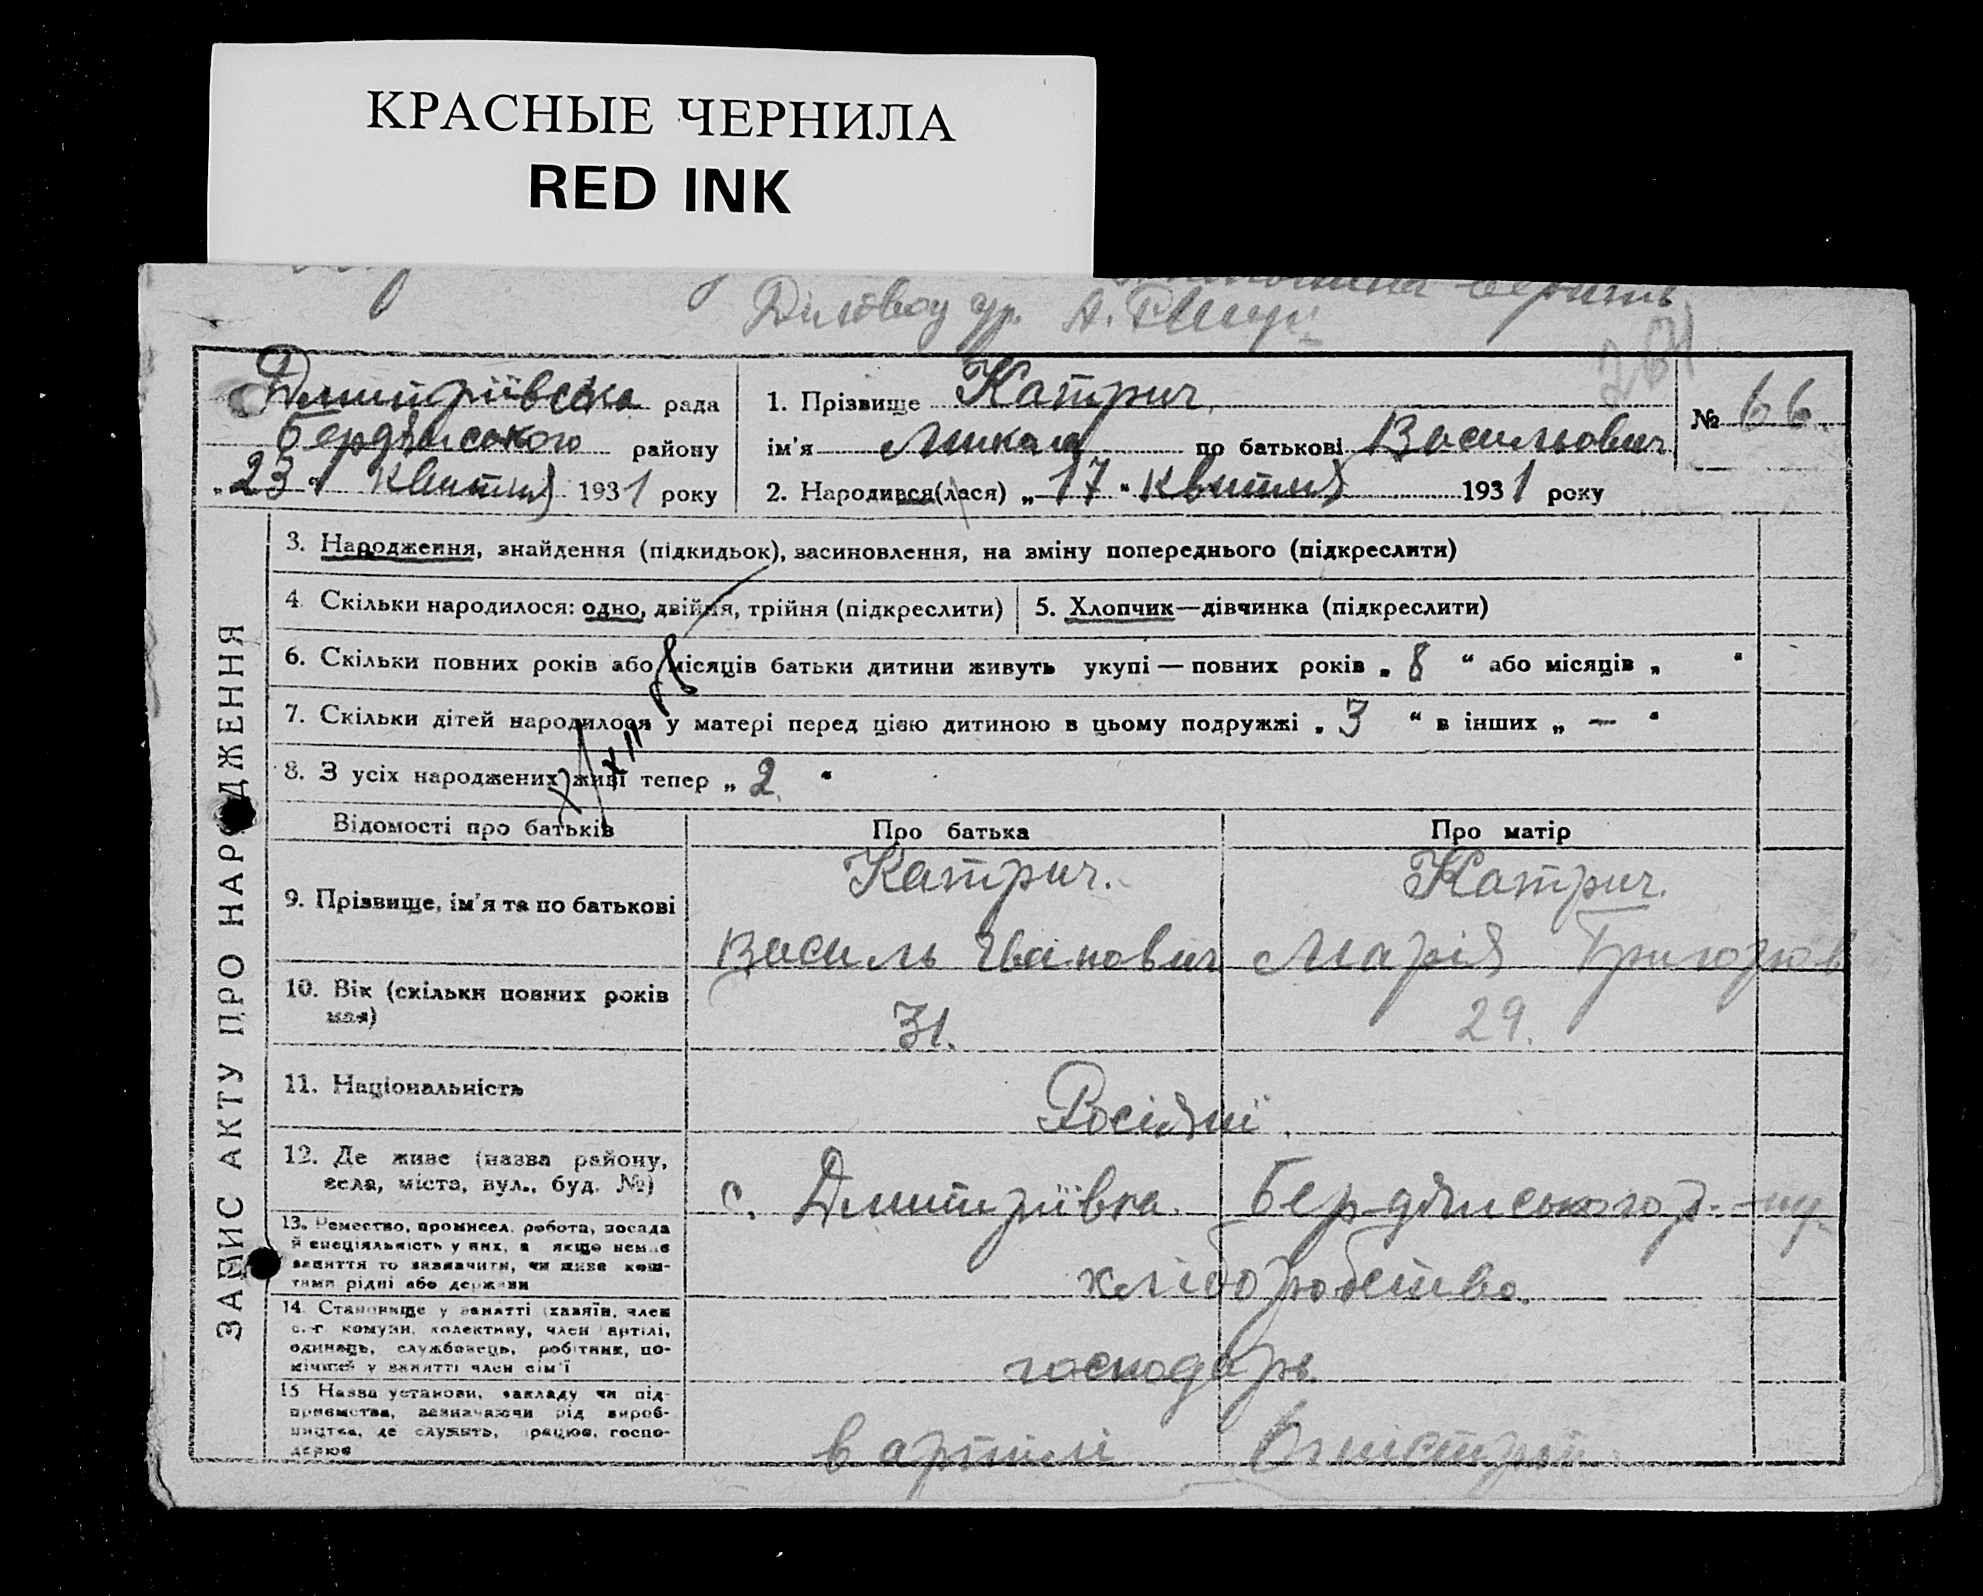 КРАСНЫЕ ЧЕРНИЛА
RED INK
Діловод
Дмитріївська рада
Бердянського району
„23" Квітня 1931 року
1. Прізвище Катрич
ім'я Микола по батькові Васильович
2. Народився(лася) „17" Квітня 1931 року
№ 66
ЗАПИС АКТУ ПРО НАРОДЖЕННЯ
3. Народження, знайдення (підкидьок), засиновлення, на зміну попереднього (підкреслити)
4. Скільки народилося: одно, двійня, трійня (підкреслити)
5. Хлопчик—дівчинка (підкреслити)
6. Скільки повних років або місяців батьки дитини живуть укупі — повних років „8" або місяців „ "
7. Скільки дітей народилося у матері перед цією дитиною в цьому подружжі „3" в інших „—"
8. З усіх народжених живі тепер „2"
Відомості про батьків Про батька Про матір
9. Прізвище, ім'я та по батькові
Катрич. Катрич.
Василь Іванович Марія Григорів
10. Вік (скільки повних років має)
31. 29.
11. Національність
Росіяні.
12. Де живе (назва району,
села, міста, вул., буд. №)
с. Дмитріївка Бердянського р-ну
13. Ремество, промисел, робота, посада
й спеціяльність у них, а якщо немає
заняття то зазначити, чи живе кош-
тами рідні або держави
хліборобство.
14. Становище у занятті (хазяїн, член
с.-г комуни, колективу, член артілі,
одинець, службовець, робітник, по-
мічний у занятті член сім'ї
господарь
15 Назва установи, закладу чи під-
приємства, зазначаючи рід вироб-
ництва, де служить, працює, госпо-
дарює
в артілі